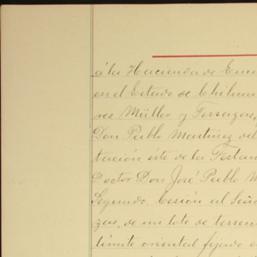 á la Hacienda de
en el Estado de Chihua
res Müller y Terrazas,
Don Pablo Martinez del
tación éste de la Testam
Doctor Don José Pablo M
Segundo. Cesión al Seño
zas, de un lote de terren
límite oriental fijado